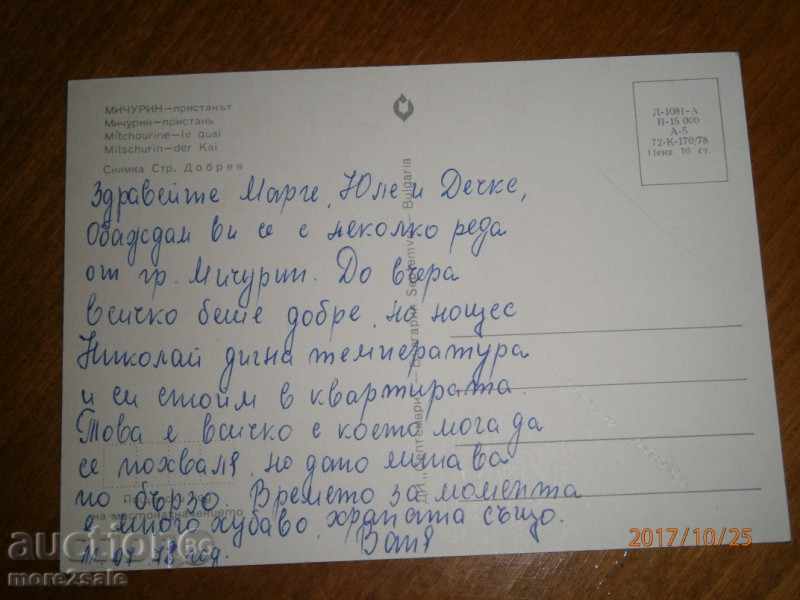 МИЧУРИН—пристанът
Мичурин—пристань
Mitchourine—le quai
Mitschurin—der Kai
Снимка Стр. Добрев
Д-1081-А
П-15 000
А-5
72-К-170/78
Цена 10 ст.
Здравейте Марге, Юле и Дечке,
Обаждам ви се с неколко реда
от гр. Мичурин. До вчера
всичко беше добре, но нощес
Николай дигна температура
и си стоим в квартирата.
Това е всичко с което мога да
се похваля, но дано мина
по бързо. Времето за момента
е много хубаво, храната също.
Ваня
78 год.
на местоназначението
Bulgaria
2017/10/25
auction.bg
more2sale